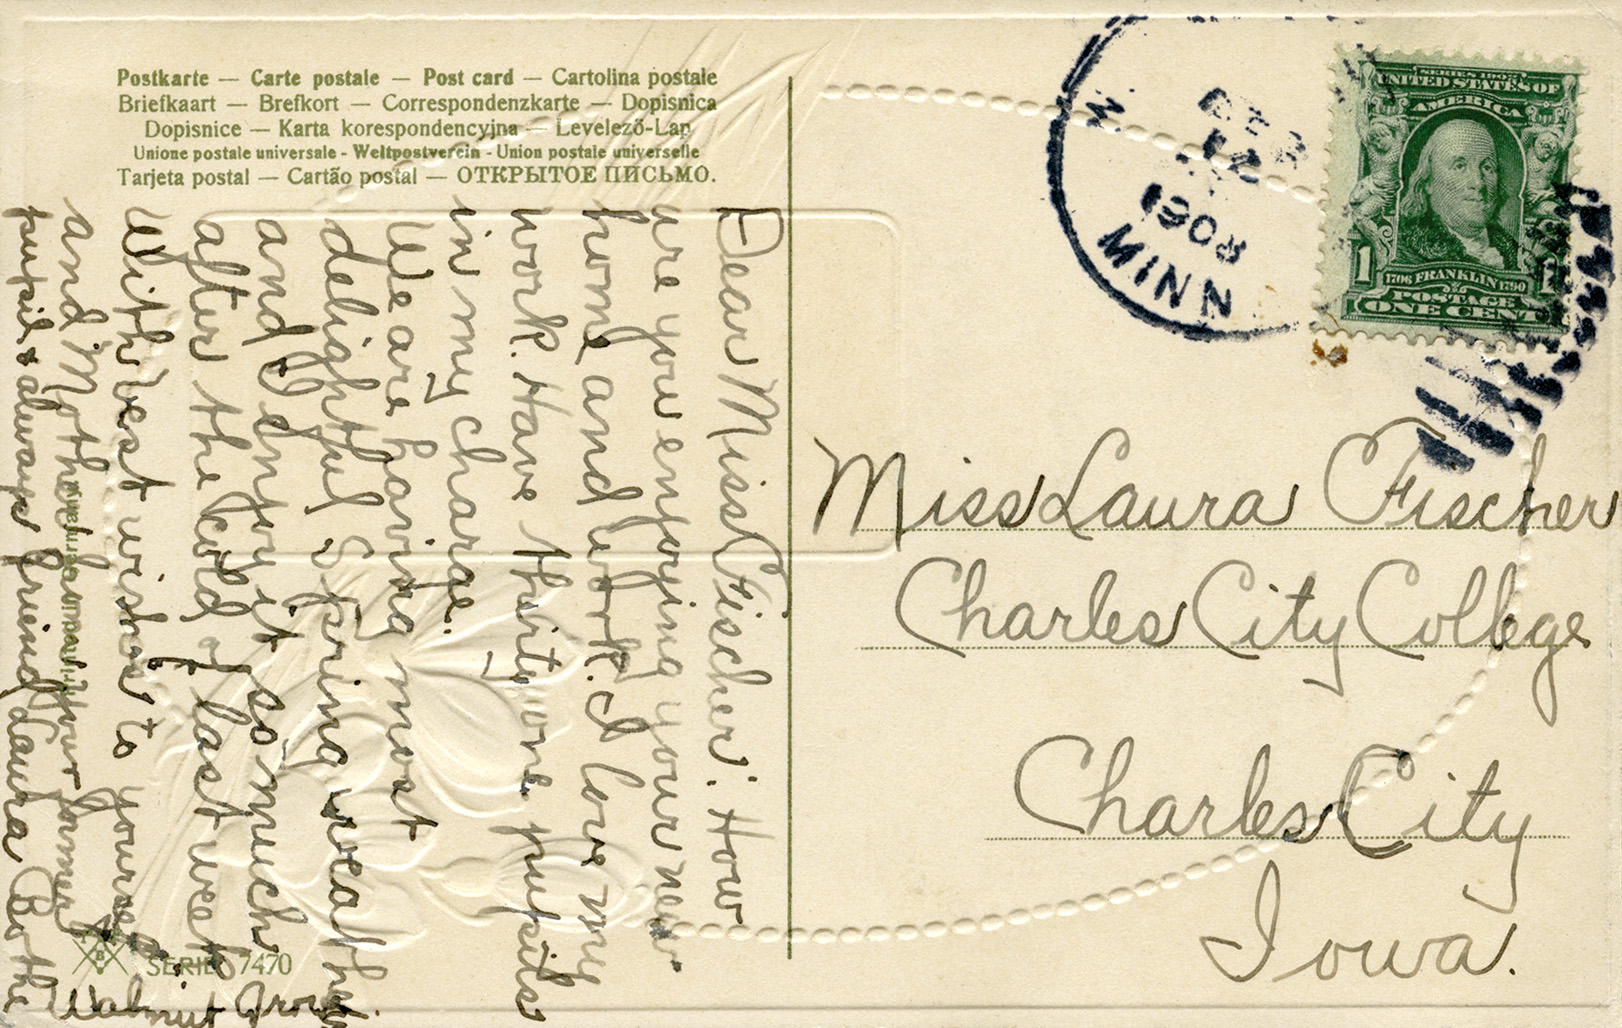 Postkarte — Carte postale — Post card — Cartolina postale
Briefkaart — Brefkort — Correspondenzkarte — Dopisnica
Dopisnice — Karta korespondencyjna — Levelező-Lap
Unione postale universale - Weltpostverein - Union postale universelle
Tarjeta postal — Cartão postal — ОТКРЫТОЕ ПИСЬМО.
Dear Miss Fischer: How
are you enjoying your new
home and work. I love my
work. Have thirty one pupils
in my charge.
We are having most
delightful Spring weather
and I enjoy it so much
after the cold of last week
With best wishes to yourself
and Mother Your former
pupil & always friend Laura Bothe
Walnut Grove
SERIE 7470
DEC
12
1908
MINN
SERIES 1902
UNITED STATES OF
AMERICA
1
1706 FRANKLIN 1790
POSTAGE
ONE CENT
Miss Laura Fischer
Charles City College
Charles City
Iowa.